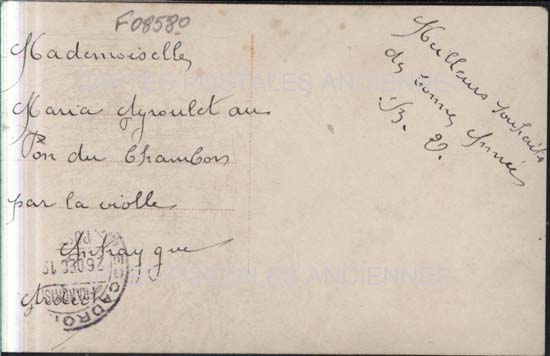 F08580
Mademoiselle
Maria Ayroulet au
Pon du Chambon
par la violle
Antrayque
Meilleurs souhaits
de bonne Année
CARTES POSTALES ANCIENNES
CARTES POSTALES ANCIENNES
26 DEC 1
CADRO